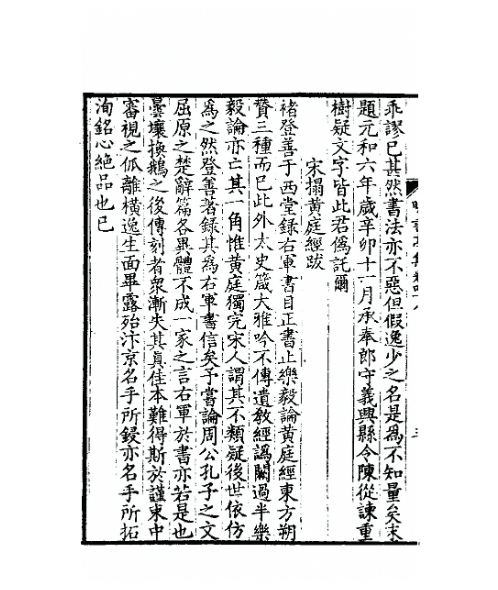 乖謬已甚然書法亦不惡但假逸少之名是為不知量矣末
題元和六年歲辛卯十一月承奉郎守義興縣令陳從諫重
樹疑文字皆此君僞託爾
宋搨黃庭經跋
褚登善于西堂錄右軍書目正書止樂毅論黃庭經東方朔
贊三種而已此外太史箴大雅吟不傳遺教經譌闕過半樂
毅論亦亡其一角惟黃庭獨完宋人謂其不類疑後世依仿
為之然登善著錄其為右軍書信矣予嘗論周公孔子之文
屈原之楚辭篇各異體不成一家之言右軍於書亦若是也
曇壤換鵝之後傳刻者衆漸失其真佳本難得斯於謹束中
審視之仍離橫逸生面畢露殆汴京名手所鋟亦名手所拓
洵銘心絶品也已